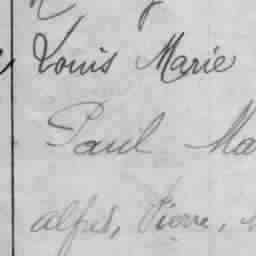 Louis Marie
Paul Ma
alfred, Pierre,